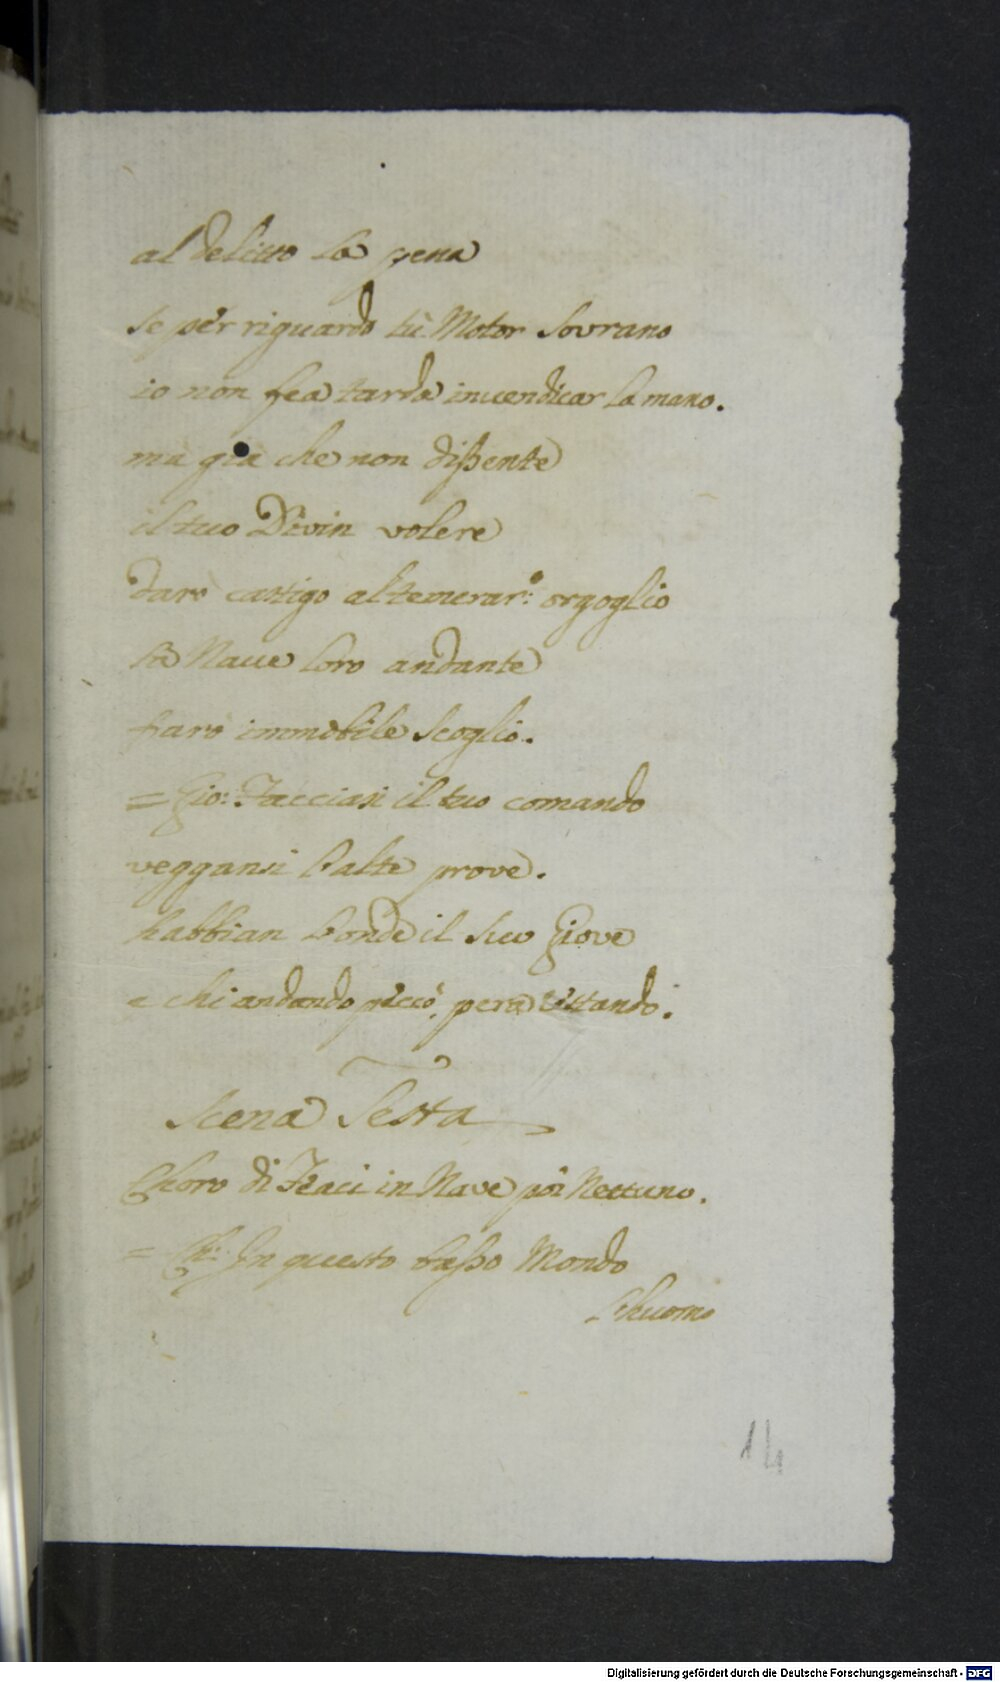 al delitto la pena
se per riguardo tù Motor Sovrano
io non fea tarda in uendicar la mano.
ma già che non dißente
il tuo Divin volere
daro castigo al temerar: orgoglio
la Naue loro andante
faro immobile Scoglio.
= Gio: Facciasi il tuo comando
veggansi l'alte prove.
habbian l'onde il suo Giove
e chi andando peccò, pera stando.
Scena Sesta
Choro di Feaci in Nave poi Nettuno.
= Ch: In questo baßo Mondo
L'huomo
14
Digitalisierung gefördert durch die Deutsche Forschungsgemeinschaft - DFG